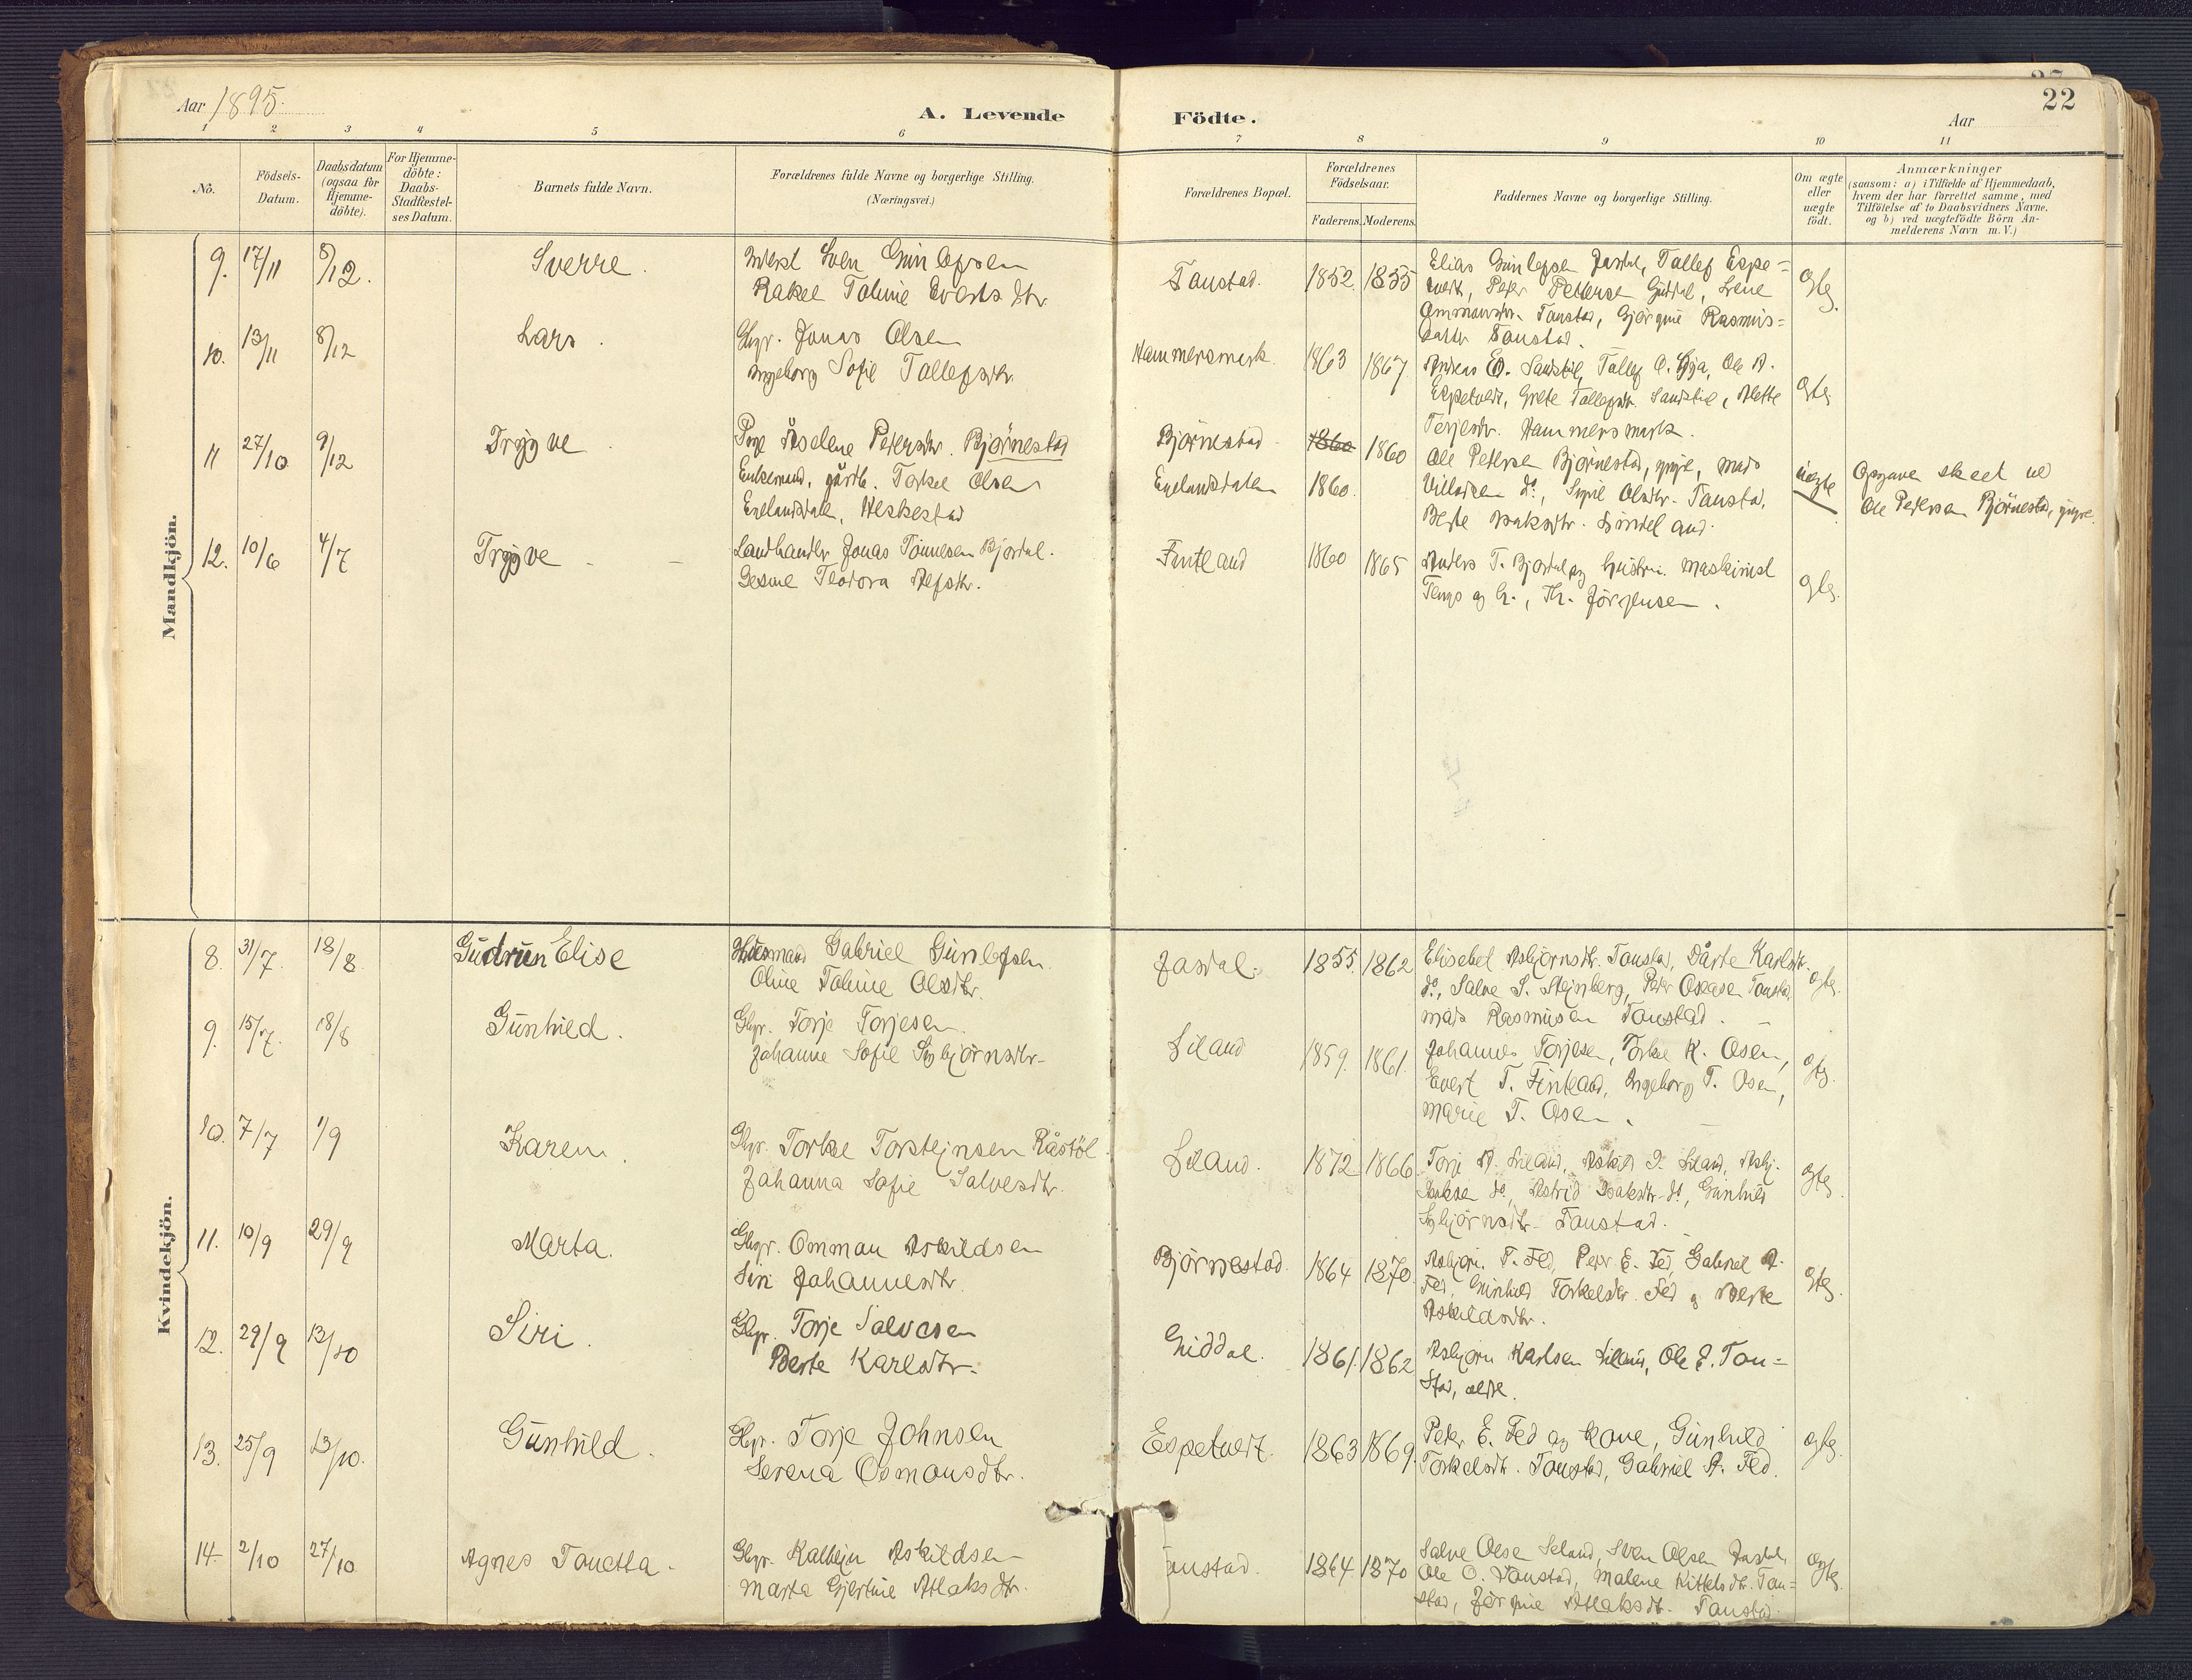 Aar 1895.
A. Levende Födte.
Aar
22
1 2 3 4 5 6 7 8 9 10 11
No.
Födsels-
Datum.
Daabsdatum
(ogsaa for
Hjemme-
döbte).
For Hjemme-
döbte:
Daabs-
Stadfæstel-
ses Datum.
Barnets fulde Navn.
Forældrenes fulde Navne og borgerlige Stilling.
(Næringsvei.)
Forældrenes Bopæl.
Forældrenes
Födselsaar.
Faderens. Moderens.
Faddernes Navne og borgerlige Stilling.
Om ægte
eller
uægte
födt.
Anmærkninger
(saasom: a) i Tilfælde af Hjemmedaab,
hvem der har forrettet samme, med
Tilföielse af to Daabsvidners Navne.
og b) ved uægtefödte Börn An-
melderens Navn m. V.)
Mandkjön.
9. 17/11 8/12. Sverre. Sven Gunlefsen
Rakel Taline Evertsdtr.
Taustad. 1852. 1855
Elias Gunlefsen Jasdal, Tallef Espe-
tveit, Peter Petersen Lene
Ommundsdr. Taustad, Rasmus-
datter Taustad.
10. 13/11 8/12 Lars. Gbr. Jonas Olsen
Ingeborg Sofie Tallefsdtr.
Hammersmark 1863 1867.
Andreas Tallef O. Ole A.
Espetveit, Grete Tallefsdtr. Alette
Terjesdr. Hammersmark.
11 27/10 9/12 Trygve Pige Aselene Petersdtr. Björnestad
Enkemand, gårdb. Torkel Olsen
Eielandsdalen, Heskestad
Björnestad 1860 1860
Eielandsdalen 1860.
Ole Petersen Björnestad, yngre, Mads
do, Olsdtr. Taustad,
Berte Isaksdtr.
uægte
Opgave skeet ved
Ole Petersen Björnestad, yngre.
12. 10/6 4/7 Trygve Landhandler Jonas Tönnesen Bjordal.
Gesine Teodora
Fintland 1860 1865
Anders T. Bjordal og hustru. Maskinist
Jörgensen.
Kvindekjön.
8. 31/7. 18/8 Gudrun Elise Husmand Gabriel Gunlefsen.
Oline Taline Olsdtr.
Jasdal. 1855. 1862
Elisabet Asbjörnsdtr. Taustad, Dårte Karlsdtr.
do., Salve S. Steinberg, Peter Taustad,
Mads Rasmusen Taustad.
9. 15/7. 18/8 Gunhild. Gbr. Torje Torjesen.
Johanne Sofie Asbjörnsdtr.
Liland 1859. 1861.
Johannes Torjesen, Torkel K. Osen,
Evert T. Fintland, Ingeborg T. Osen,
Marie T. Osen.
10. 7/7 1/9 Karen. Gbr. Torkel Torsteinsen Råstöl.
Johanna Sofie Salvesdtr.
Liland. 1872 1866
Torje A. Liland, Liland,
do, Astrid Isaksdtr. do, Gunhild
Asbjörnsdtr. Taustad.
11. 10/9 29/9 Marta. Gbr. Omman Askildsen
Siri Johannesdtr.
Björnestad. 1864 1870.
Asbjörn T. Fed, Peter E. Fed, Gabriel A.
Fed, Gunhild Torkelsdtr. Fed og Berte
Askildsdtr.
12. 29/9 13/10 Siri. Gbr. Torje Salvesen
Berte Karlsdtr.
Giddal. 1861. 1862
Asbjörn Karlsen Liland, Ole E. Tau-
stad, ældre.
13. 25/9 13/10. Gunhild. Gbr. Torje Johnsen
Serena Osmonsdtr.
Espetveit. 1863 1869.
Peter E. Fed og kone, Gunhild
Torkelsdtr. Taustad, Gabriel A. Fed.
14. 2/10 27/10 Agnes Tonetta. Gbr. Askildsen
Marta Gjertine Atlaksdtr.
austad. 1864 1870
Salve Olsen Seland, Sven Olsen Jasdal,
Ole O. Taustad, Malene Kittelsdtr. Tau-
stad, Atlaksdtr. Taustad.